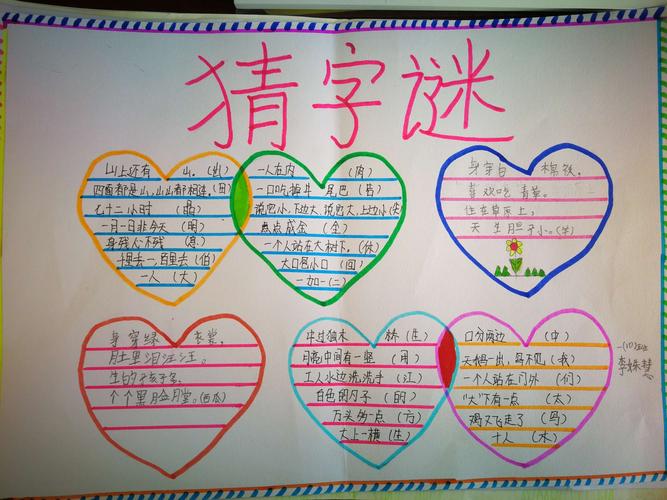 猜字谜
山上还有山。(出)
四面都是山,山山都相连。(田)
七十二小时 (晶)
一月一日非今天 (明)
身残心不残 (息)
千里去一,百里去(伯)
一人 (大)
一人在内 (肉)
一口吃掉牛尾巴 (告)
说它小,下边大,说它大,上边小(尖)
点点成金 (全)
一个人站在大树下。(休)
大口包小口 (回)
一加一(二)
身穿白棉袄,
喜欢吃青草。
住在草原上,
天生胆子小。(羊)
身穿绿衣裳,
肚里泪汪汪。
生的孩子多,
个个黑脸膛。(西瓜)
牛过独木桥 (生)
月亮中间有一竖 (用)
工人水边洗洗手 (江)
白色的勺子 (的)
万头的一点 (方)
大上一横
口分两边 (中)
天鹅一出,鸟不见 (我)
一个人站在门外 (们)
"大"下有一点 (太)
鸡又飞走了 (鸟)
十人 (木)
一(10)班
李姝慧